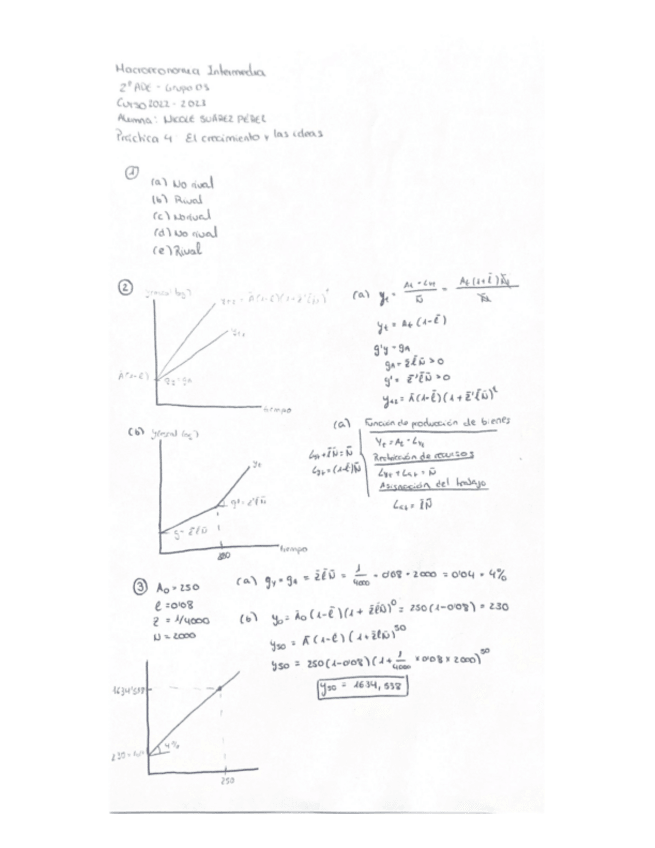 Macroeconomia Intermedia
2º ADE - Grupo 03
Curso 2022 - 2023
Alumna: NICOLE SUÁREZ PÉREZ
Práctica 4: El crecimiento y las ideas
①
(a) No rival
(b) Rival
(c) No rival
(d) No rival
(e) Rival
②
y(escal log)
tiempo
(a) yt = At · Lyt / N̄ = At (1-ℓ̄) N̄t / N̄t
yt = At (1-ℓ̄)
g'y = gA
gA = z̄ ℓ̄ N̄ > 0
g' = z̄' ℓ̄ N̄ > 0
yt2 = Ā (1-ℓ̄) (1 + z̄'ℓ̄N̄)^t
(b) y(escal log)
yt
g' = z̄'ℓ̄N̄
g = z̄ℓ̄N̄
tiempo
(a) Función de producción de bienes
Yt = At · Lyt
Restricción de recursos
Lyt + Lat = N̄
Asignación del trabajo
Lat = ℓ̄N̄
Lyt + ℓ̄N̄ = N̄
Lyt = (1-ℓ̄)N̄
③ A0 = 250
ℓ = 0'08
z = 1/4000
N = 2000
(a) gy = gA = z̄ℓ̄N̄ = 1/4000 · 0'08 · 2000 = 0'04 = 4%
(b) y0 = Ā0 (1-ℓ̄) (1 + z̄ℓ̄N̄)^0 = 250 (1-0'08) = 230
y50 = Ā (1-ℓ̄) (1 + z̄ℓ̄N̄)^50
y50 = 250 (1-0'08) (1 + 1/4000 × 0'08 × 2000)^50
y50 = 1634,538
1634'538
4%
250